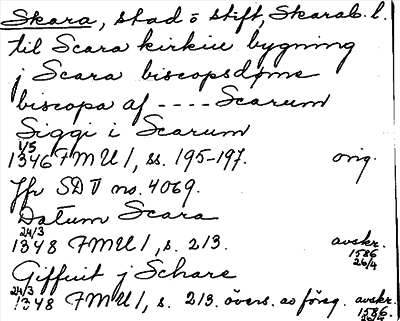 Skara, stad o stift, Skarab. l.
til Scara kirkiu bygning
j Scara biscopsdøme
biscopa af ---- Scarum
Siggi i Scarum
1/5
1346 FMU 1, ss. 195-197. orig.
Jfr SD V no. 4069.
Datum Scara
24/3
1348 FMU 1, s. 213. avskr. 1586 26/4
Giffuit j Schare
24/3
1348 FMU 1, s. 213. övers. av föreg. avskr. 1586